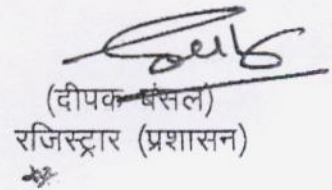 (दीपक बंसल)
रजिस्ट्रार (प्रशासन)